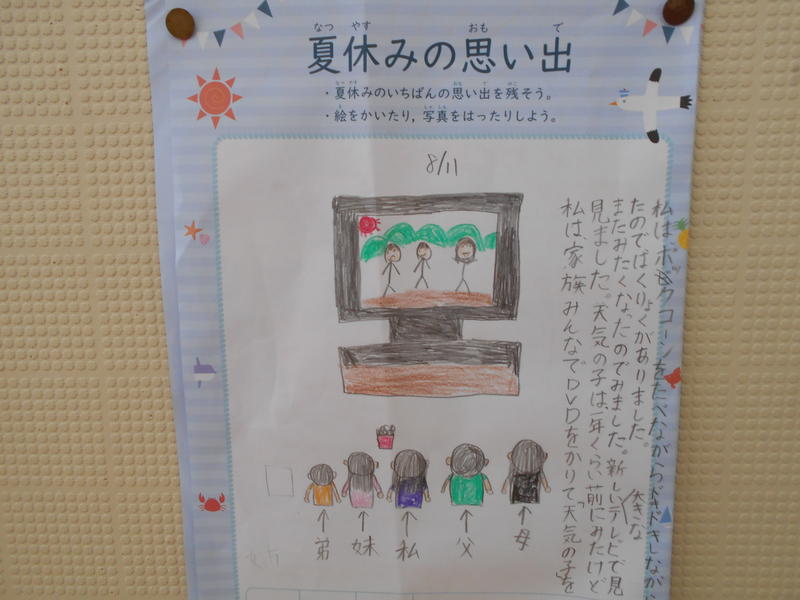 なつ やす おも で
夏休みの思い出
なつ やす おも で のこ
・夏休みのいちばんの思い出を残そう。
え しゃ しん
・絵をかいたり，写真をはったりしよう。
8/11
私は、家族みんなでDVDをかりて「天気の子」を
見ました。天気の子は、一年くらい前にみたけど
またみたくなったのでみました。新しい大きなテレビで見
たのではくりょくがありました。
私はポップコーンをたべながらドキドキしながら
弟
妹
私
父
母